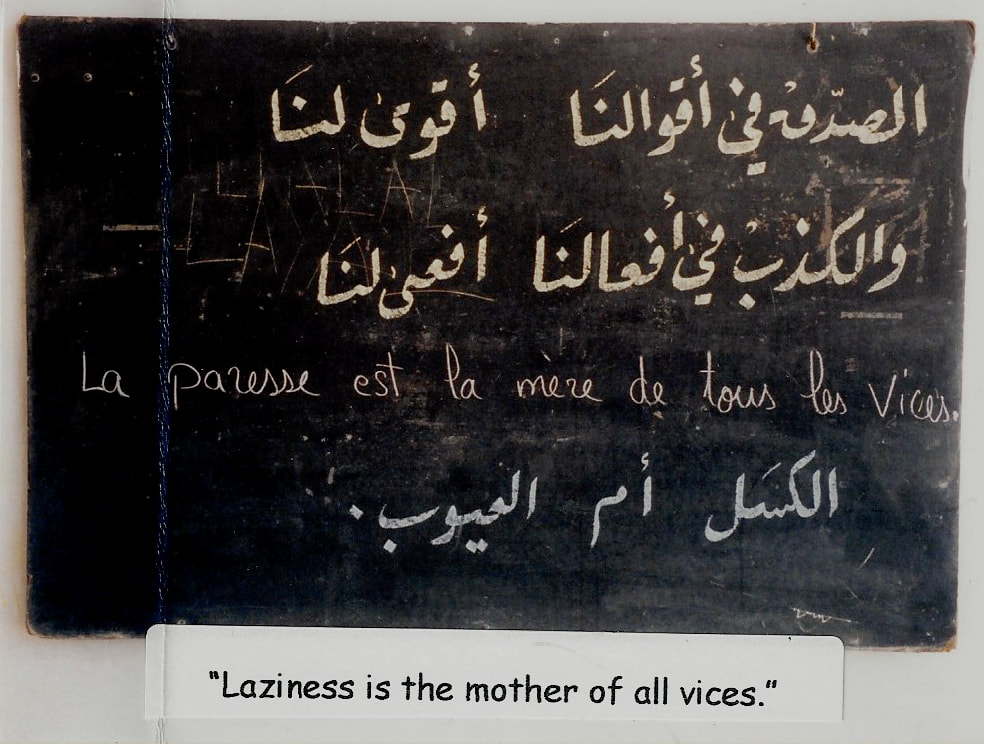 الصّدقْ في أقوالنَا أقوىٰ لنَا
والكذبْ في أفعالنَا أفعىٰ لنَا
La paresse est la mère de tous les vices.
الكسَل أم العيوب.
"Laziness is the mother of all vices."